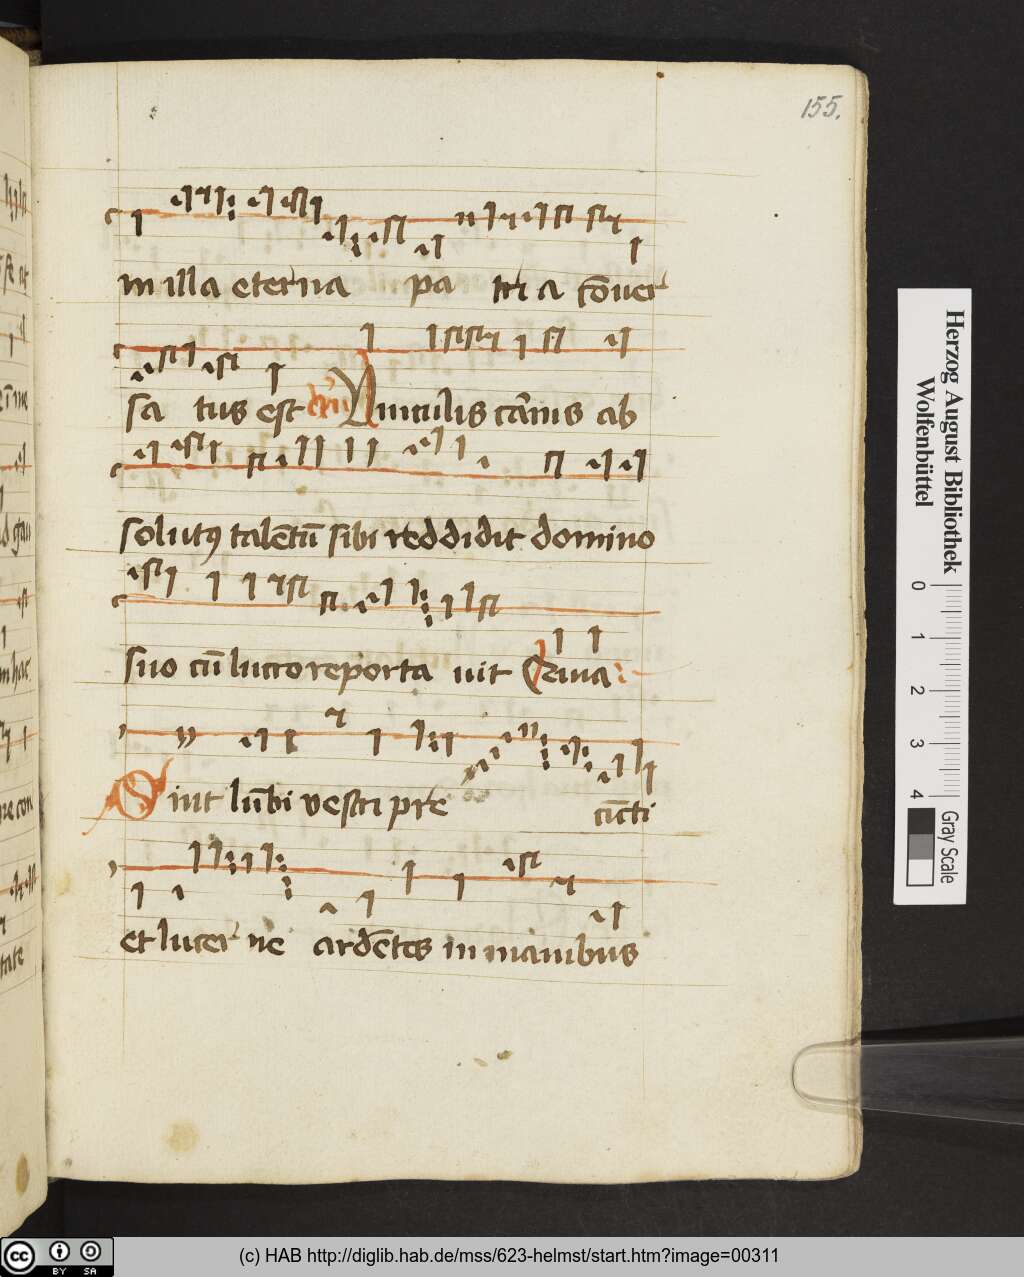 155.
in illa eterna pa tri a cōuer
sa tus est Vinculis carnis ab
solutus talētū sibi reddidit domino
suo cū lucro reporta uit Serua
Sint lūbi vestri pre cīcti
et lucer ne ardētes in manibus
Herzog August Bibliothek
Wolfenbüttel
0 1 2 3 4
Gray Scale
cc BY SA
(c) HAB http://diglib.hab.de/mss/623-helmst/start.htm?image=00311